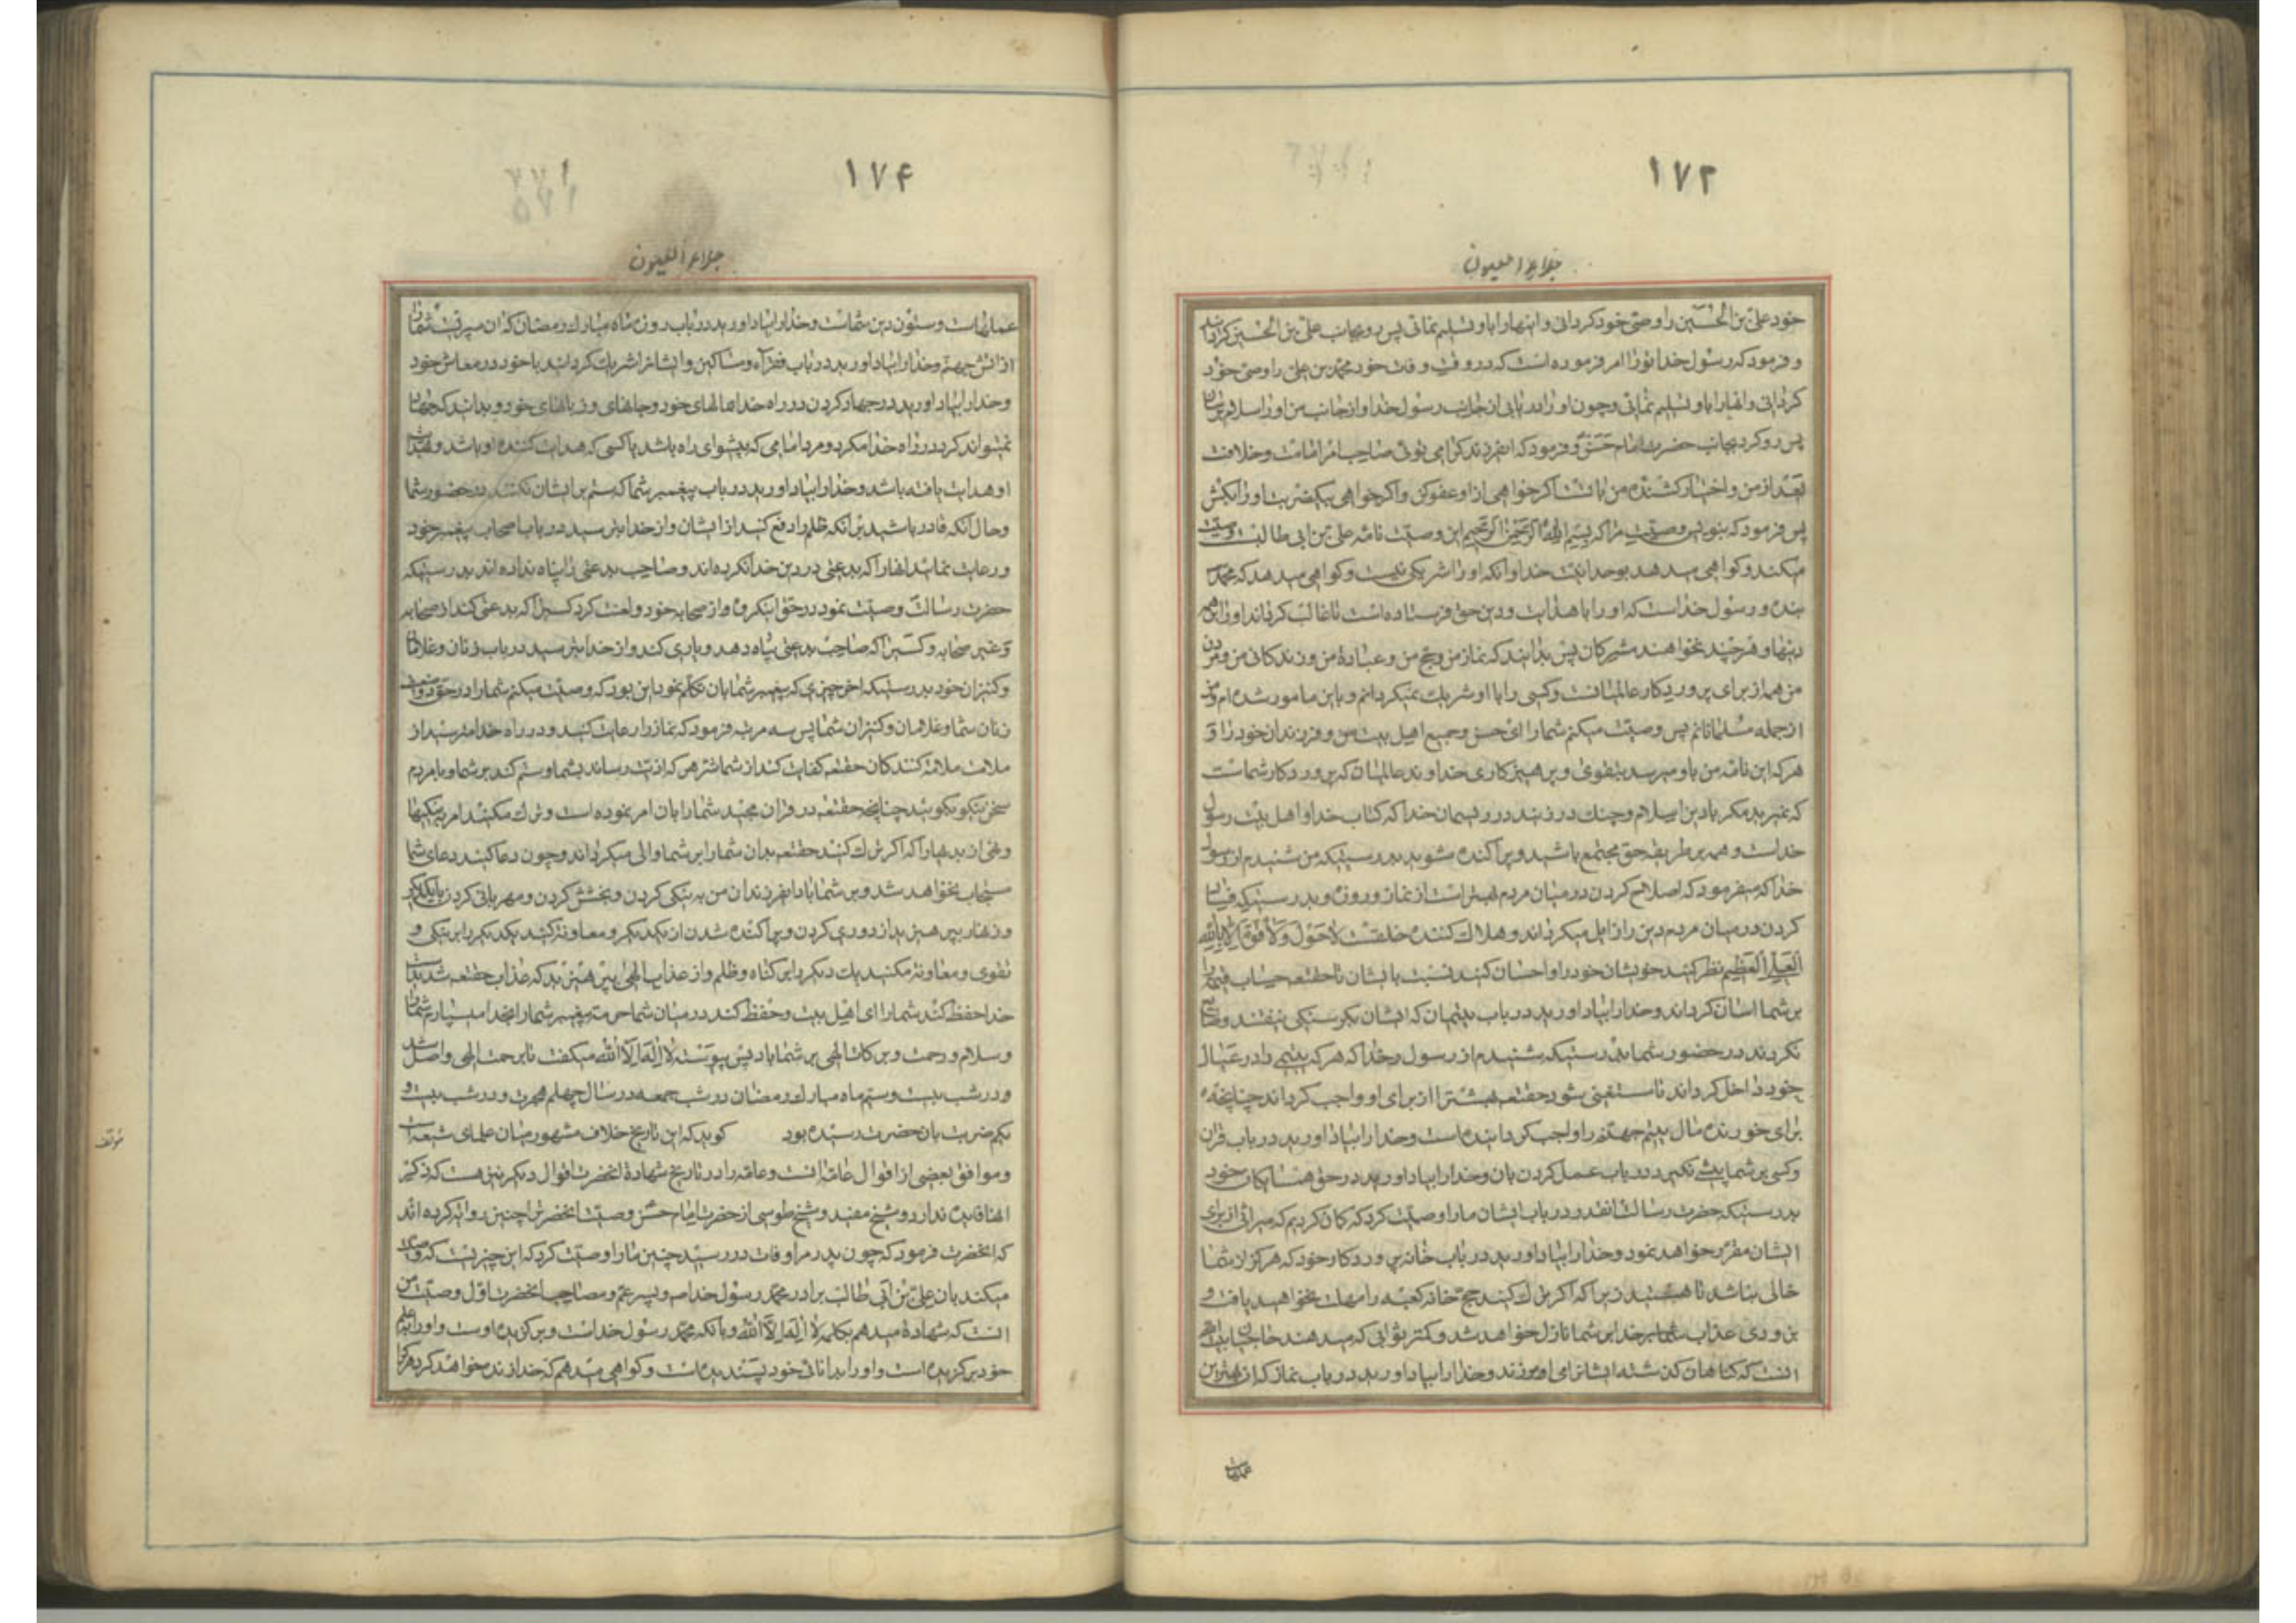 ۱۷۳
جلاء العیون
خود علی بن الحسین را وصی خود کردانی و اینها را باو تسلیم نمائی پس رو بجانب علی بن الحسین کردانید
و فرمود که رسول خدا تو را امر فرموده است که در وقت وفات خود محمد بن علی را وصی خود
کردانی و اینها را باو تسلیم نمائی و چون او را دریابی از جانب رسول خدا و از جانب من او را سلام برسان
پس رو کرد بجانب حضرت امام حسن و فرمود که ای فرزند کرامی توئی صاحب امر امامت و خلافت
بعد از من و اختیار کشنده من با تست اکر خواهی از او عفو کن و اکر خواهی بیکضربت او را بکش
پس فرمود که بنویس وصیت مرا که بسم الله الرحمن الرحیم این وصیت نامه علی بن ابی طالبست وصیت
میکند و کواهی میدهد بوحدانیت خدا و آنکه او را شریکی نیست و کواهی میدهد که محمد
بنده و رسول خداست که او را با هدایت و دین حق فرستاده است تا غالب کرداند او را بر همه
دینها و هر چند نخواهند مشرکان پس بدانید که نماز من و حج من و عبادة من و زندکانی من و مردن
من همه از برای پروردکار عالمیانست و کسی را با او شریک نمیکردانم و باین مامور شده ام و من
از جمله مسلمانانم پس وصیت میکنم شما را ای حسن و جمیع اهل بیت من و فرزندان خود را و
هر که این نامه من باو میرسد بتقوی و پرهیزکاری خداوند عالمیان که پروردکار شماست
که نمیرید مکر با دین اسلام و چنک در زنید در ریسمان خدا که کتاب خدا و اهل بیت رسول
خداست و همه بر طریقه حق مجتمع باشید و پراکنده مشوید بدرستیکه من شنیدم از رسول
خدا که میفرمود که اصلاح کردن در میان مردم بهتر است از نماز و روزه و بدرستیکه فساد
کردن در میان مردم دین را زایل میکرداند و هلاک کننده خلقست لا حول ولا قوة الا بالله
العلی العظیم نظر کنید خویشان خود را و احسان کنید نسبت بایشان تا حقتعه حساب قیامت را
بر شما اسان کرداند و خدا را بیاد اورید در باب یتیمان که ایشان بکرسنکی نیفتند و ضایع
نکردند در حضور شما بدرستیکه شنیدم از رسول و خدا که هر که یتیمی را در عیال
خود داخل کرداند تا مستغنی شود حقتعه بهشترا از برای او واجب کرداند چنانچه
برای خورنده مال یتیم جهنم را واجب کردانیده است و خدا را بیاد اورید در باب قران
و کسی بر شما پیشی نکیرد در باب عمل کردن بان و خدا را بیاد اورید در حق همسایکان خود
بدرستیکه حضرت رسالت انقدر در باب ایشان ما را وصیت کرد که کان کردیم که میراثی از برای
ایشان مقرر خواهد نمود و خدا را بیاد اورید در باب خانه پروردکار خود که هرکز از شما
خالی نباشد تا هستید زیرا که اکر ترک کنید حج خانه کعبه را مهلت نخواهید یافت و
بزودی عذاب خدا بر شما نازل خواهد شد و کمتر ثوابی که میدهند حاجیانرا
انست که کناهان کذشته ایشانرا می اومرزند و خدا را بیاد اورید در باب نماز که ان بهترین
عملهاست
۱۷۴
جلاء العیون
عملهاست و ستون دین شماست و خدا را بیاد اورید در باب روزه ماه مبارک رمضان که ان سپریست شما را
از اتش جهنم و خدا را بیاد اورید در باب فقراء و مساکین و ایشانرا شریک کردانید با خود در معاش خود
و خدا را بیاد اورید در جهاد کردن در راه خدا بمالهای خود و جانهای و زبانهای خود و بدانید که جهاد
نمیتواند کرد در راه خدا مکر دو مرد امامی که پیشوای راه باشد یا کسی که هدایت کننده او باشد و بهدایت
او هدایت یافته باشد و خدا را بیاد اورید در باب پیغمبر شما که ستم بر ایشان نکنند در حضور شما
و حال آنکه قادر باشید بر آنکه ظلم را دفع کنید از ایشان و از خدا بترسید در باب اصحاب پیغمبر خود
و رعایت نمائید انها را که بدعتی در دین خدا نکرده اند و صاحب بدعتی را پناه نداده اند بدرستیکه
حضرت رسالت وصیت نمود در حق اینکروه از صحابه خود و لعنت کرد کسیرا که بدعتی کند از صحابه
و غیر صحابه و کسیرا که صاحب بدعتی پناه دهد و یاری کند و از خدا بترسید در باب زنان و غلامان
و کنیزان خود بدرستیکه اخر چیزی که پیغمبر شما بان تکلم نمود این بود که وصیت میکنم شما را در حق دو ضعیف
زنان شما و غلامان و کنیزان شما پس سه مرتبه فرمود که نماز را رعایت کنید و در راه خدا مترسید از
ملامت ملامت کنندکان حقتعه کفایت کند از شما شر هر که اذیت رساند بشما و ستم کند بر شما و با مردم
سخن نیکو بکوئید چنانچه حقتعه در قران مجید شما را بان امر نموده است و ترک مکنید امر به نیکیها
و نهی از بدیها را که اکر ترک کنید حقتعه بدان شما را بر شما والی میکرداند و چون دعا کنید دعای شما
مستجاب نخواهد شد و بر شما باد ای فرزندان من به نیکی کردن و بخشش کردن و مهربانی کردن با یکدیکر
و زنهار بپرهیزید از دوری کردن و پراکنده شدن از یکدیکر و معاونة کنید یکدیکر را بر نیکی و
تقوی و معاونة مکنید یک دیکر را بر کناه و ظلم و از عذاب الهی بپرهیزید که عذاب حقتعه شدیدست
خدا حفظ کند شما را ای اهل بیت و حفظ کند در میان شما حرمت پیغمبر شما را بخدا میسپارم شما را
و سلام و رحمت و برکات الهی بر شما باد پس پیوسته لا اله الا الله میکفت تا برحمت الهی واصل شد
و در شب بیست و سیم ماه مبارک رمضان در شب جمعه در سال چهلم هجرت و در شب بیست و
یکم ضربت بان حضرت رسیده بود کوید که این تاریخ خلاف مشهور میان علمای شیعه است
مؤلف
و موافق بعضی از اقوال عامه است و عامه را در تاریخ شهادة انحضرت اقوال دیکر نیز هست که ذکر
انها فایده ندارد و شیخ مفید و شیخ طوسی از حضرت امام حسن وصیت انحضرترا چنین روایة کرده اند
که انحضرت فرمود که چون پدر مرا وفات در رسید چنین ما را وصیت کرد که این چیزیست که وصیت
میکند بان علی بن ابی طالب برادر محمد رسول خدا صه و پسر عم و مصاحب انحضرت اول وصیت من
انست که شهادة میدهم بکلمه لا اله الا الله و بانکه محمد رسول خداست و برکزیده اوست و او را بعلم
خود برکزیده است و او را بدانائی خود پسندیده است و کواهی میدهم که خدا زنده خواهد کرد هر که را